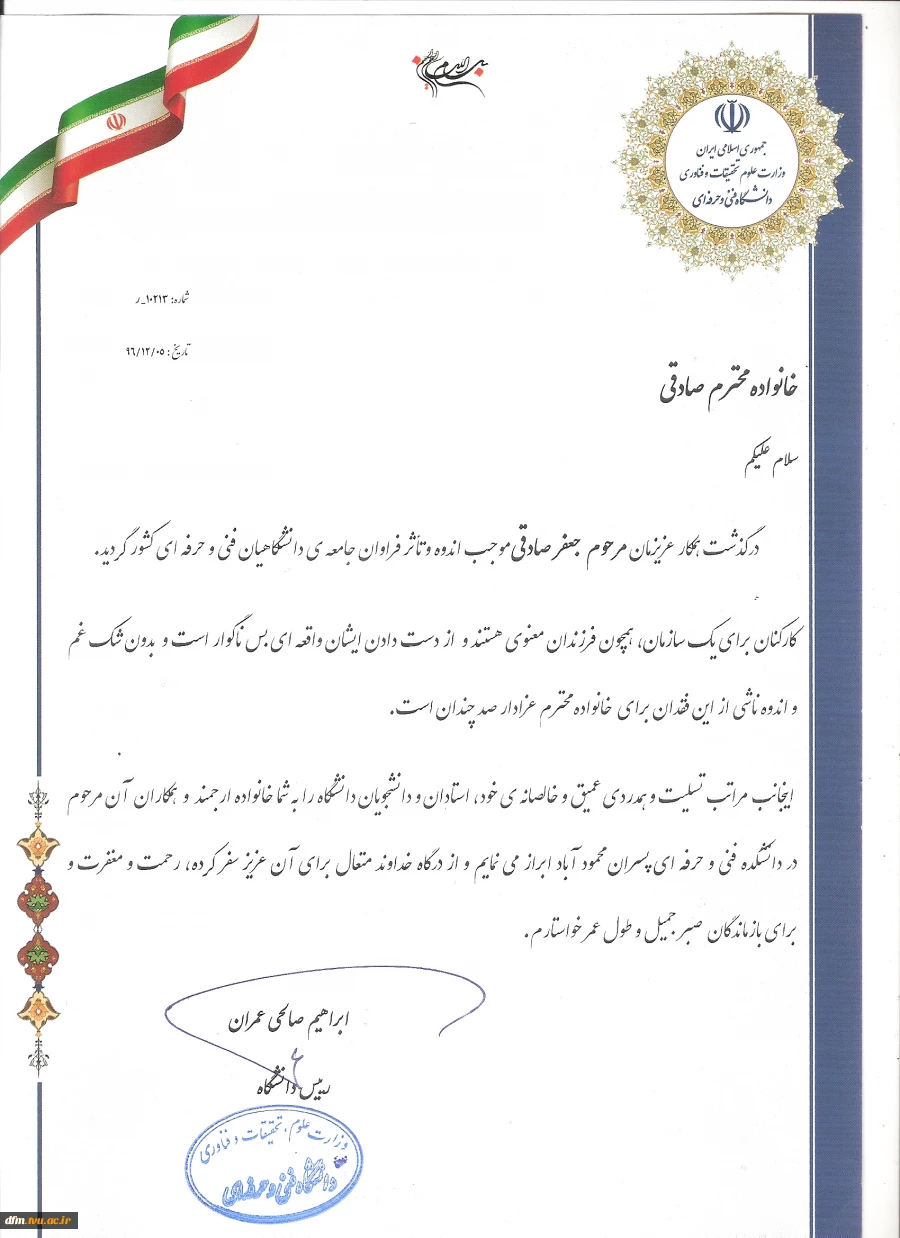 بسم الله الرحمن الرحیم
جمهوری اسلامی ایران
وزارت علوم تحقیقات و فناوری
دانشگاه فنی و حرفه‌ای
شماره: ۱۰۲۱۳_ر
تاریخ: ۹۶/۱۲/۰۵
خانواده محترم صادقی
سلام علیکم
درگذشت همکار عزیزمان مرحوم جعفر صادقی موجب اندوه و تأثر فراوان جامعه ی دانشگاهیان فنی و حرفه ای کشور گردید.
کارکنان برای یک سازمان، همچون فرزندان معنوی هستند و از دست دادن ایشان واقعه ای بس ناگوار است و بدون شک غم
و اندوه ناشی از این فقدان برای خانواده محترم عزادار صد چندان است.
اینجانب مراتب تسلیت و همدردی عمیق و خالصانه ی خود، استادان و دانشجویان دانشگاه را به شما خانواده ارجمند و همکاران آن مرحوم
در دانشکده فنی و حرفه ای پسران محمود آباد ابراز می نمایم و از درگاه خداوند متعال برای آن عزیز سفر کرده، رحمت و مغفرت و
برای بازماندگان صبر جمیل و طول عمر خواستارم.
ابراهیم صالحی عمران
رییس دانشگاه
وزارت علوم، تحقیقات و فناوری
دانشگاه فنی و حرفه‌ای
dfm.tvu.ac.ir